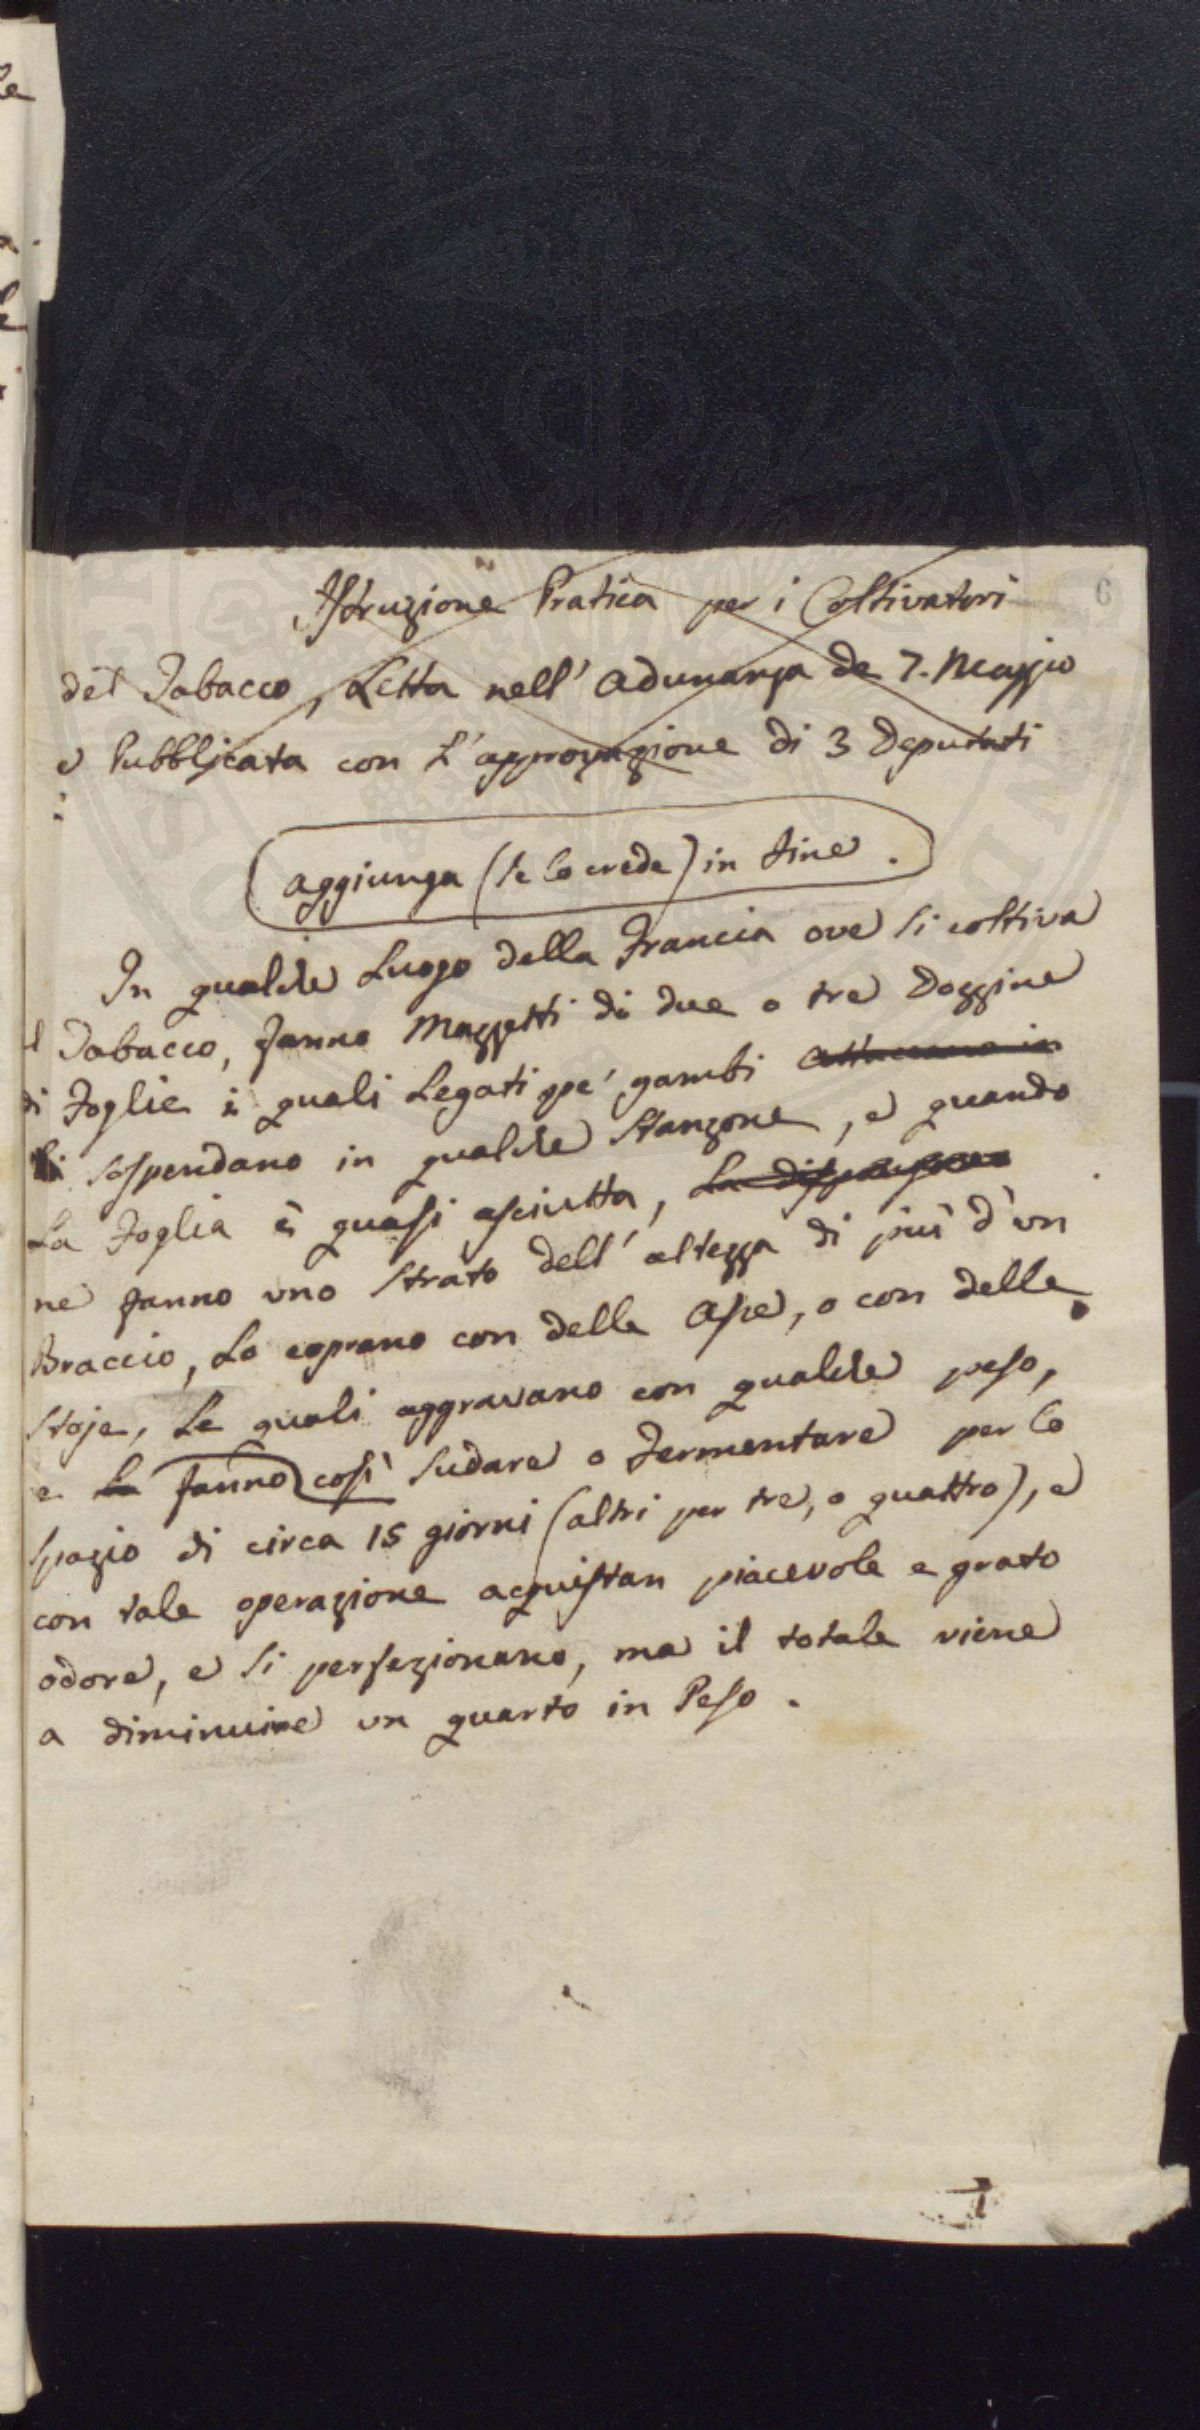 6
Istruzione Pratica per i Coltivatori
del Tabacco, Letta nell' adunanza de 7. Maggio
e Pubblicata con L'approvazione di 3 Deputati
:
aggiunga (se lo crede) in fine.
In qualche Luogo della Francia ove si coltiva
il Tabacco, fanno Mazzetti di due o tre Dozzine
di Foglie i quali Legati pe' gambi attaccano in
li sospendano in qualche Stanzone, e quando
La Foglia è quasi asciutta, La
ne fanno uno Strato dell' altezza di più d'un
Braccio, Lo coprano con delle Asse, o con delle
Stoje, Le quali aggravano con qualche peso,
e La fanno così Sudare o Fermentare per lo
spazio di circa 15 giorni (altri per tre, o quattro), e
con tale operazione acquistan piacevole e grato
odore, e si perfezionano, ma il totale viene
a diminuire un quarto in Peso.